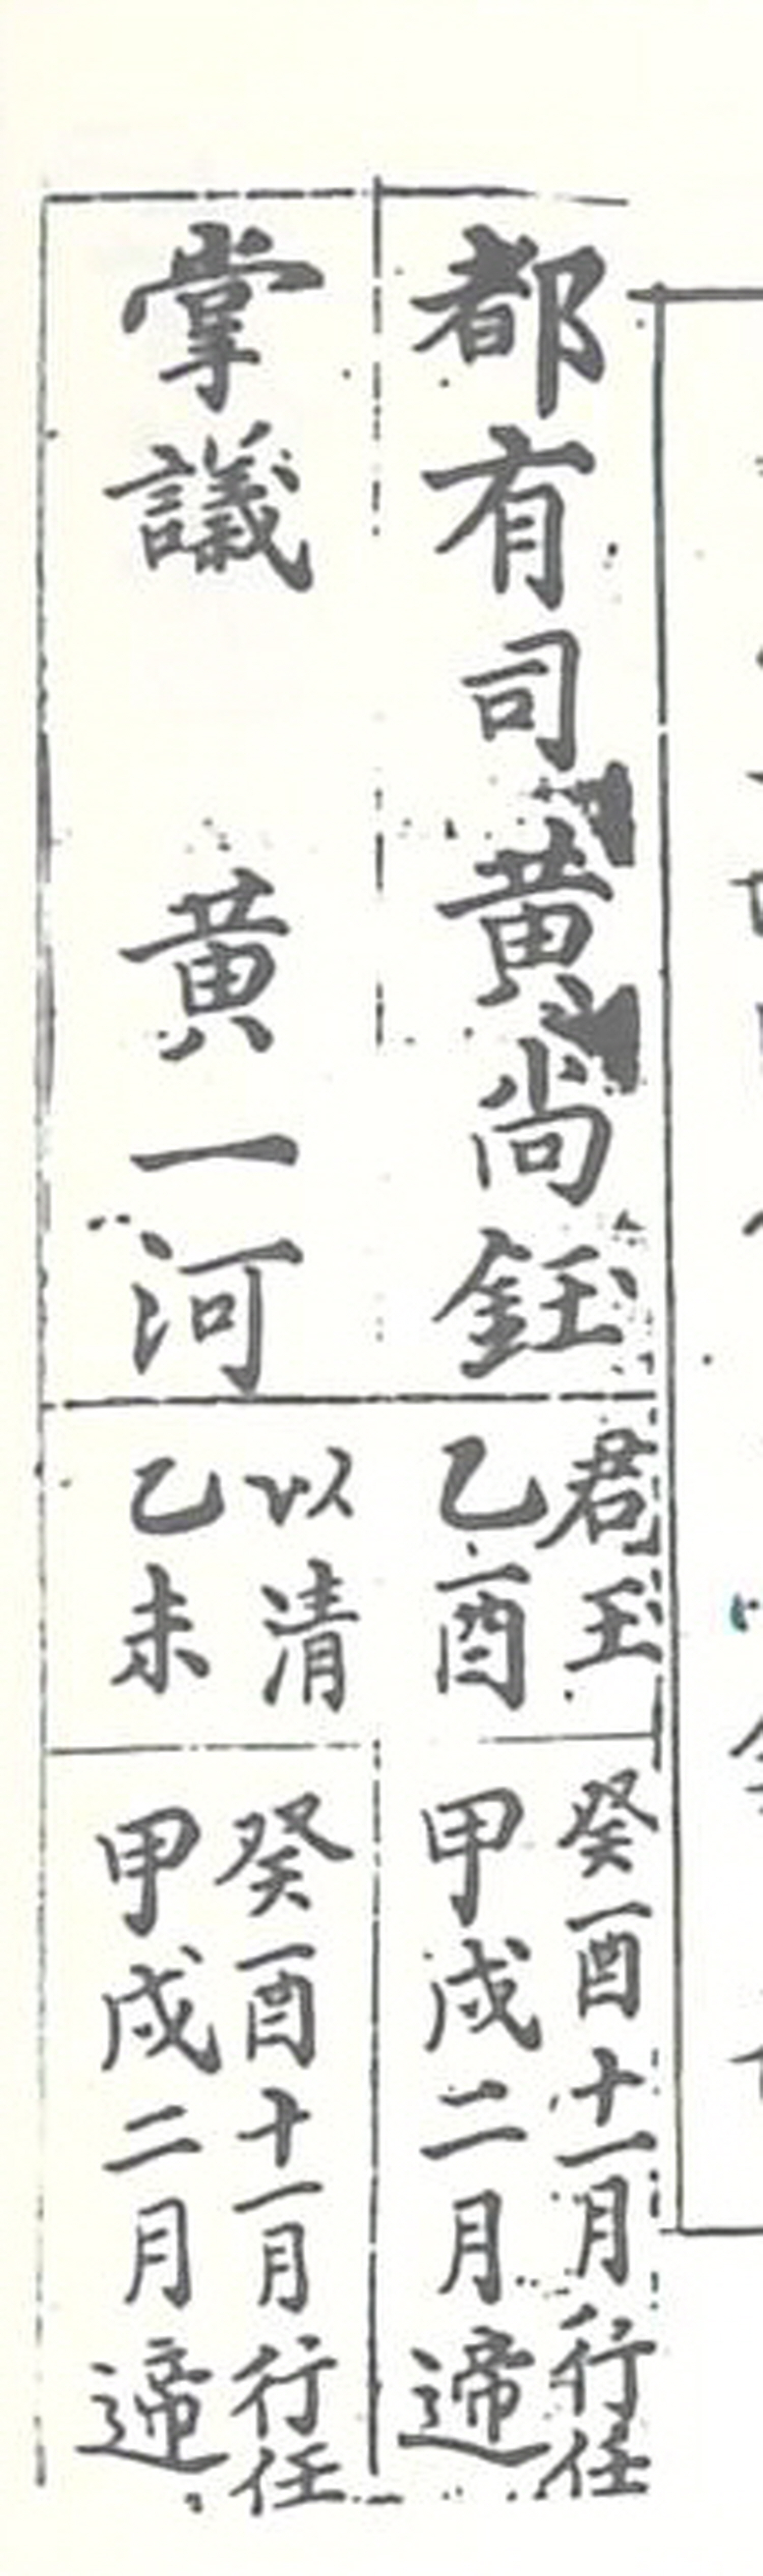 都有司黃尚鈺
君玉
乙酉
癸酉十一月行任
甲戌二月遞
掌議 黃一河
以清
乙未
癸酉十一月行任
甲戌二月遞